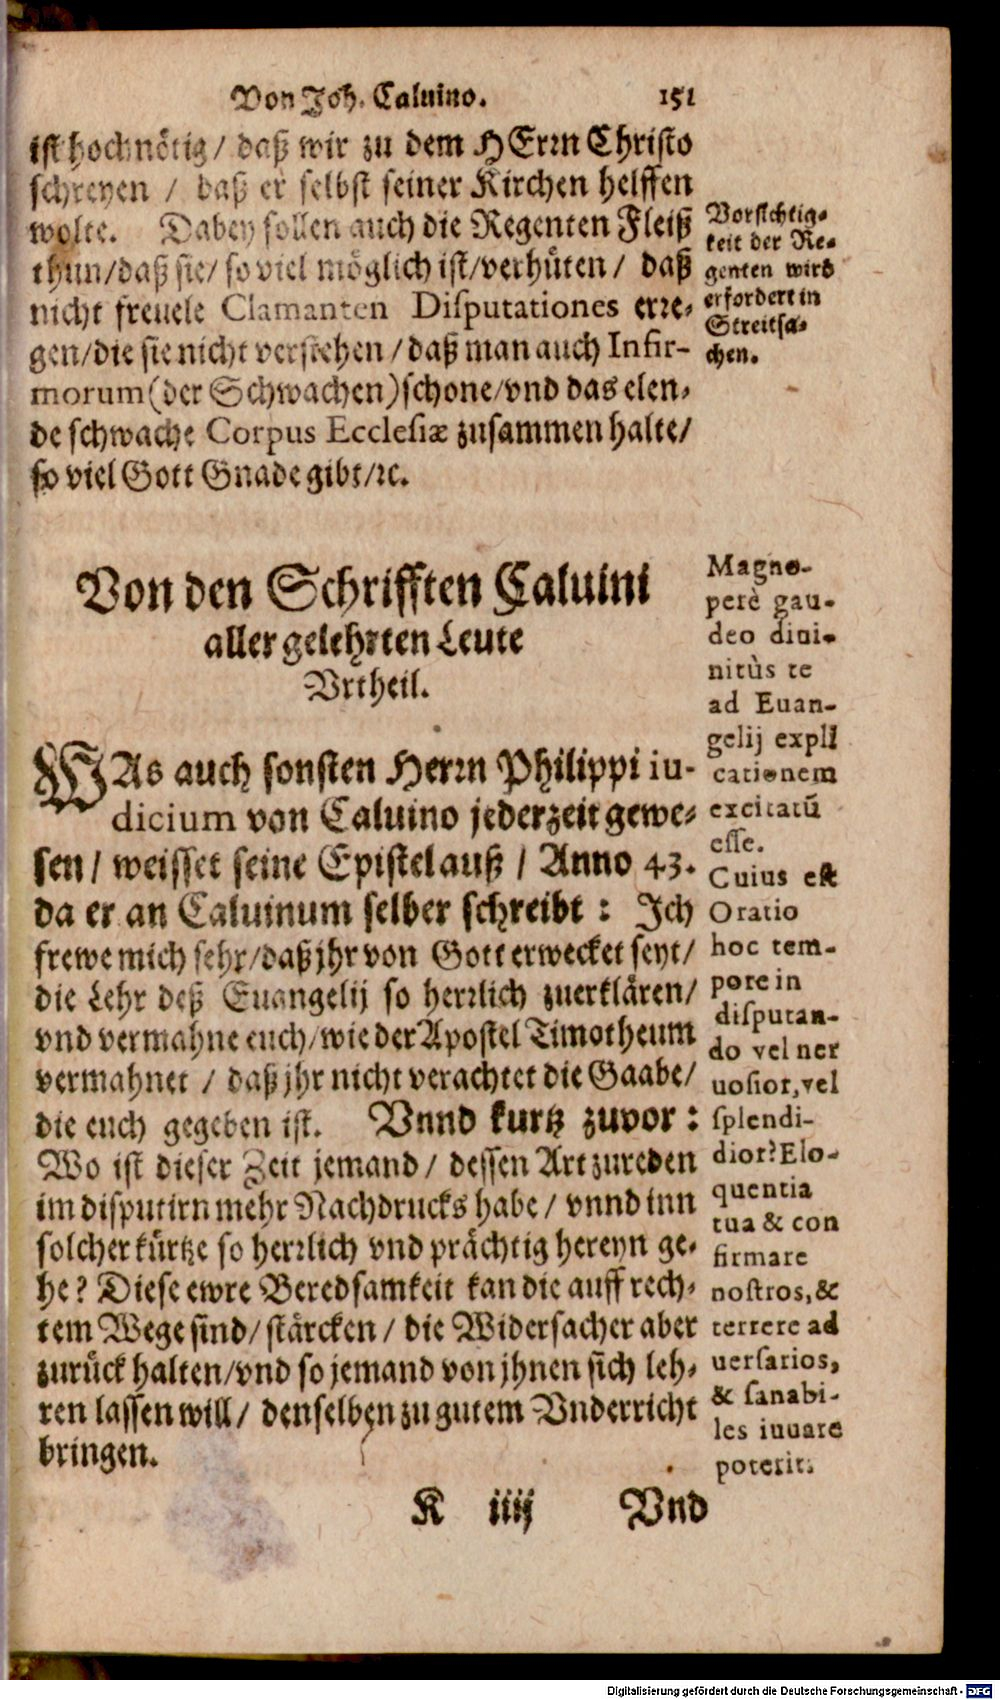 Von Joh. Caluino. 151
ist hochnötig / daß wir zu dem HErrn Christo
schreyen / daß er selbst seiner Kirchen helffen
wolte. Dabey sollen auch die Regenten Fleiß
thun/daß sie/ so viel möglich ist/verhüten / daß
nicht freuele Clamanten Disputationes erre-
gen/die sie nicht verstehen / daß man auch Infir-
morum (der Schwachen) schone/vnd das elen-
de schwache Corpus Ecclesiæ zusammen halte/
so viel Gott Gnade gibt/ꝛc.
Vorsichtig-
keit der Re-
genten wird
erfordert in
Streitsa-
chen.
Von den Schrifften Caluini
aller gelehrten Leute
Vrtheil.
WAs auch sonsten Herrn Philippi iu-
dicium von Caluino jederzeit gewe-
sen / weisset seine Epistel auß / Anno 43.
da er an Caluinum selber schreibt : Ich
frewe mich sehr/daß jhr von Gott erwecket seyt/
die Lehr deß Euangelij so herrlich zuerklären/
vnd vermahne euch/wie der Apostel Timotheum
vermahnet / daß jhr nicht verachtet die Gaabe/
die euch gegeben ist. Vnnd kurtz zuvor :
Wo ist dieser Zeit jemand / dessen Art zureden
im disputirn mehr Nachdrucks habe / vnnd inn
solcher kürtze so herrlich vnd prächtig hereyn ge-
he? Diese ewre Beredsamkeit kan die auff rech-
tem Wege sind/ stärcken / die Widersacher aber
zurück halten/vnd so jemand von jhnen sich leh-
ren lassen will / denselben zu gutem Vnderricht
bringen.
Magno-
perè gau-
deo diui-
nitùs te
ad Euan-
gelij expli
cationem
excitatũ
esse.
Cuius est
Oratio
hoc tem-
pore in
disputan-
do vel ner
uosior, vel
splendi-
dior? Elo-
quentia
tua & con
firmare
nostros, &
terrere ad
uersarios,
& sanabi-
les iuuare
poterit.
K iiij Vnd
Digitalisierung gefördert durch die Deutsche Forschungsgemeinschaft - DFG